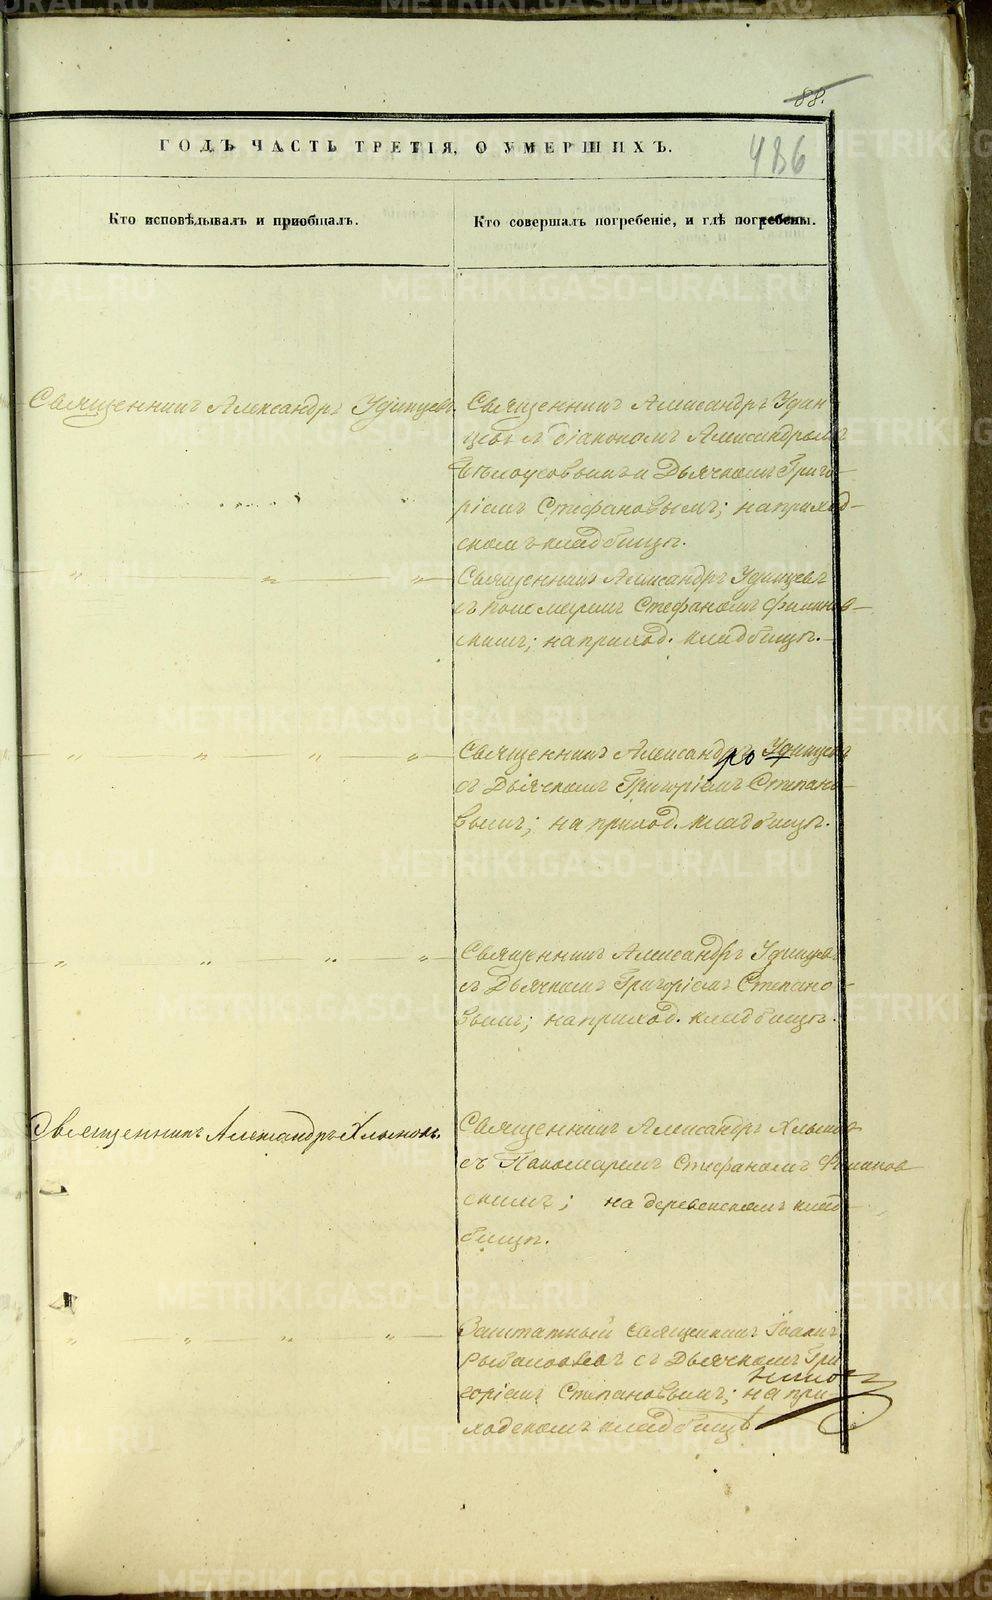 88.
ГОДЪ ЧАСТЬ ТРЕТІЯ, О УМЕРШИХЪ.
486
Кто исповѣдывалъ и пріобщалъ.
Кто совершалъ погребеніе, и гдѣ погребены.
Священникъ Александръ Удинцевъ.
Священникъ Александръ Удин-
цевъ съ діакономъ Александромъ
Бѣлоусовымъ и Дьячкомъ Григо-
ріемъ Стефановымъ; на приход-
скомъ кладбищѣ.
— „ — „ — „ —
Священникъ Александръ Удинцевъ
съ пономаремъ Стефаномъ
скимъ; на приход. кладбищѣ.
— „ — „ — „ — „ —
Священникъ Александръ Удинцевъ
съ Дьячкомъ Григоріемъ Степано-
вымъ; на приход. кладбищѣ.
— „ — „ — „ — „ —
Священникъ Александръ Удинцевъ
съ Дьячкомъ Григоріемъ Степано-
вымъ; на приход. кладбищѣ.
Священникъ Александръ Хлыновъ.
Священникъ Александръ Хлыновъ
съ Пономаремъ Стефаномъ
скимъ; на деревенскомъ клад-
бищѣ.
„ — „ — „ — „ —
Заштатный священникъ Іоаннъ
съ Дьячкомъ Гри
горіемъ Степановымъ; на при-
ходскомъ кладбищѣ
METRIKI.GASO-URAL.RU